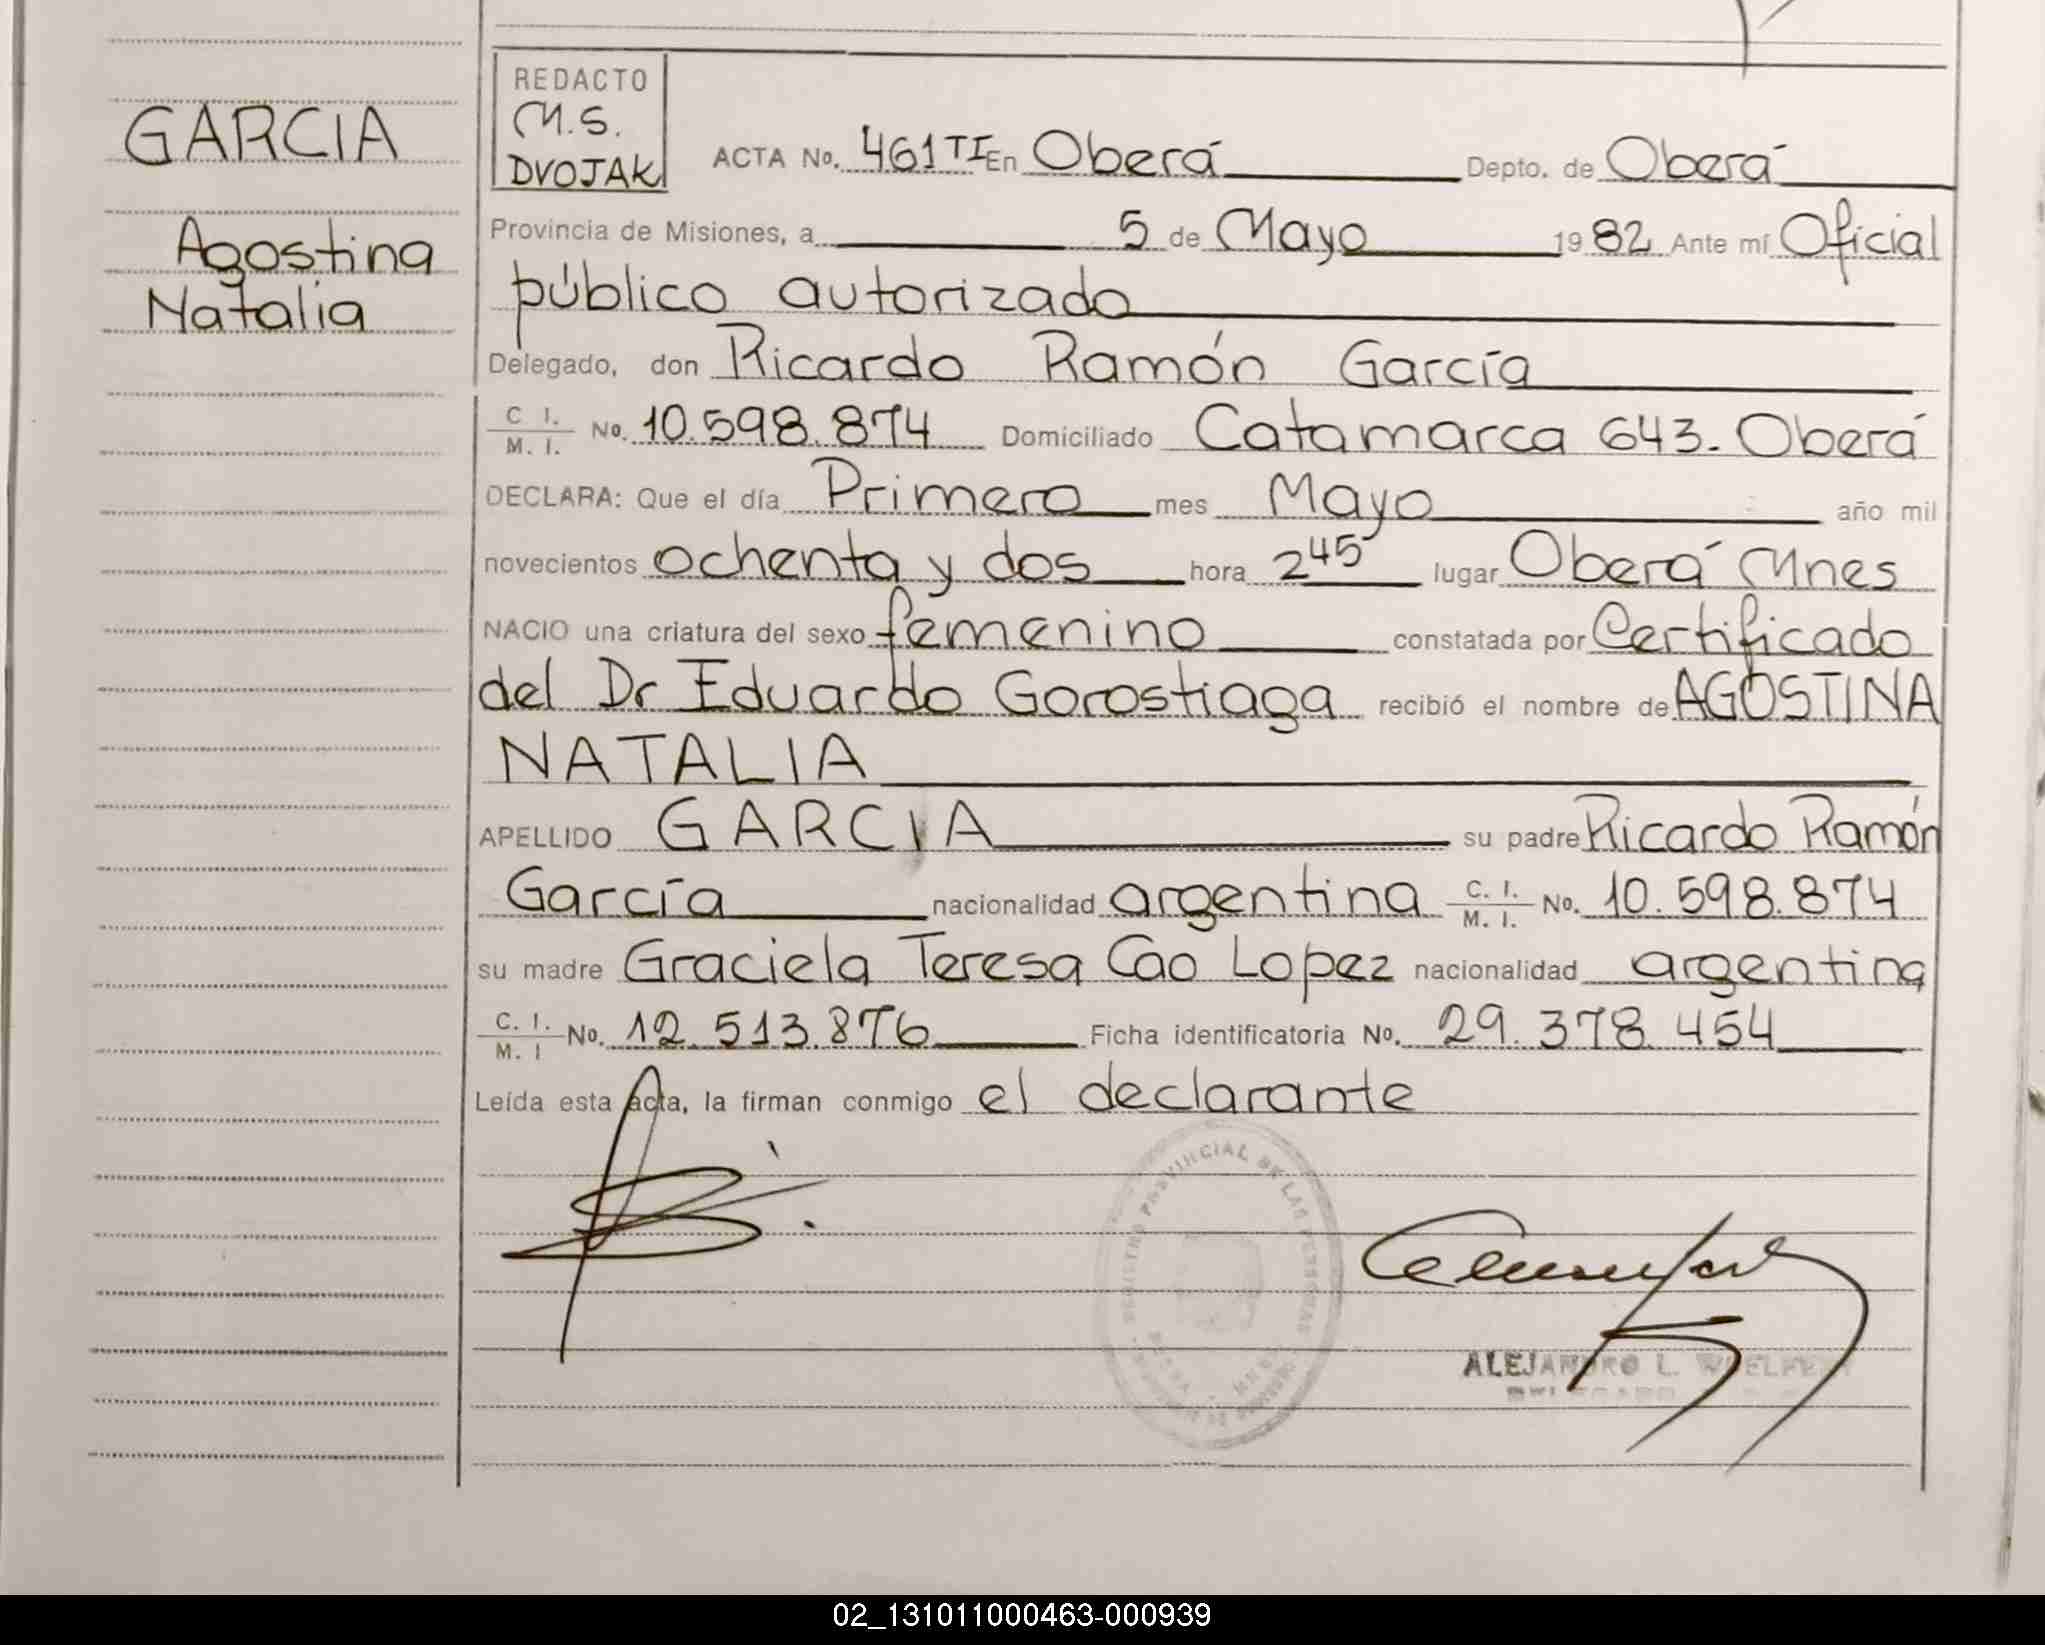 GARCIA
Agostina
Natalia
REDACTO
M.S.
DVOJAK
ACTA No. 461 TI En Oberá Depto. de Oberá
Provincia de Misiones, a 5 de Mayo 1982 Ante mí Oficial
público autorizado
Delegado, don Ricardo Ramón García
C I. / M. I. No. 10.598.874 Domiciliado Catamarca 643. Oberá
DECLARA: Que el día Primero mes Mayo año mil
novecientos ochenta y dos hora 2 45 lugar Oberá Mnes
NACIO una criatura del sexo femenino constatada por Certificado
del Dr Eduardo Gorostiaga recibió el nombre de AGOSTINA
NATALIA
APELLIDO GARCIA su padre Ricardo Ramón
García nacionalidad argentina C. I. / M. I. No. 10.598.874
su madre Graciela Teresa Cao Lopez nacionalidad argentina
C. I. / M. I No. 12.513.876 Ficha identificatoria No. 29.378.454
Leída esta acta, la firman conmigo el declarante
REGISTRO PROVINCIAL DE LAS PERSONAS
ALEJANDRO L.
02_131011000463-000939